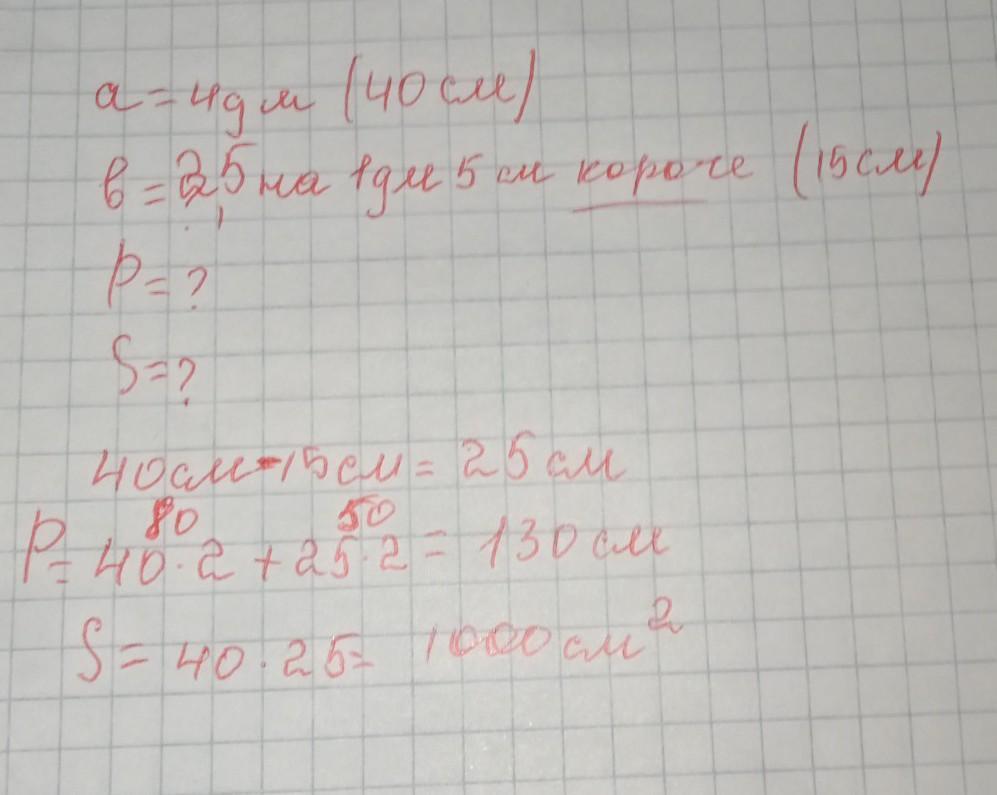 a = 4дм (40см)
в = 25 на 1дм 5см короче (15см)
P = ?
S = ?
40см - 15см = 25см
80 50
P = 40 · 2 + 25 · 2 = 130см
S = 40 · 25 = 1000см²